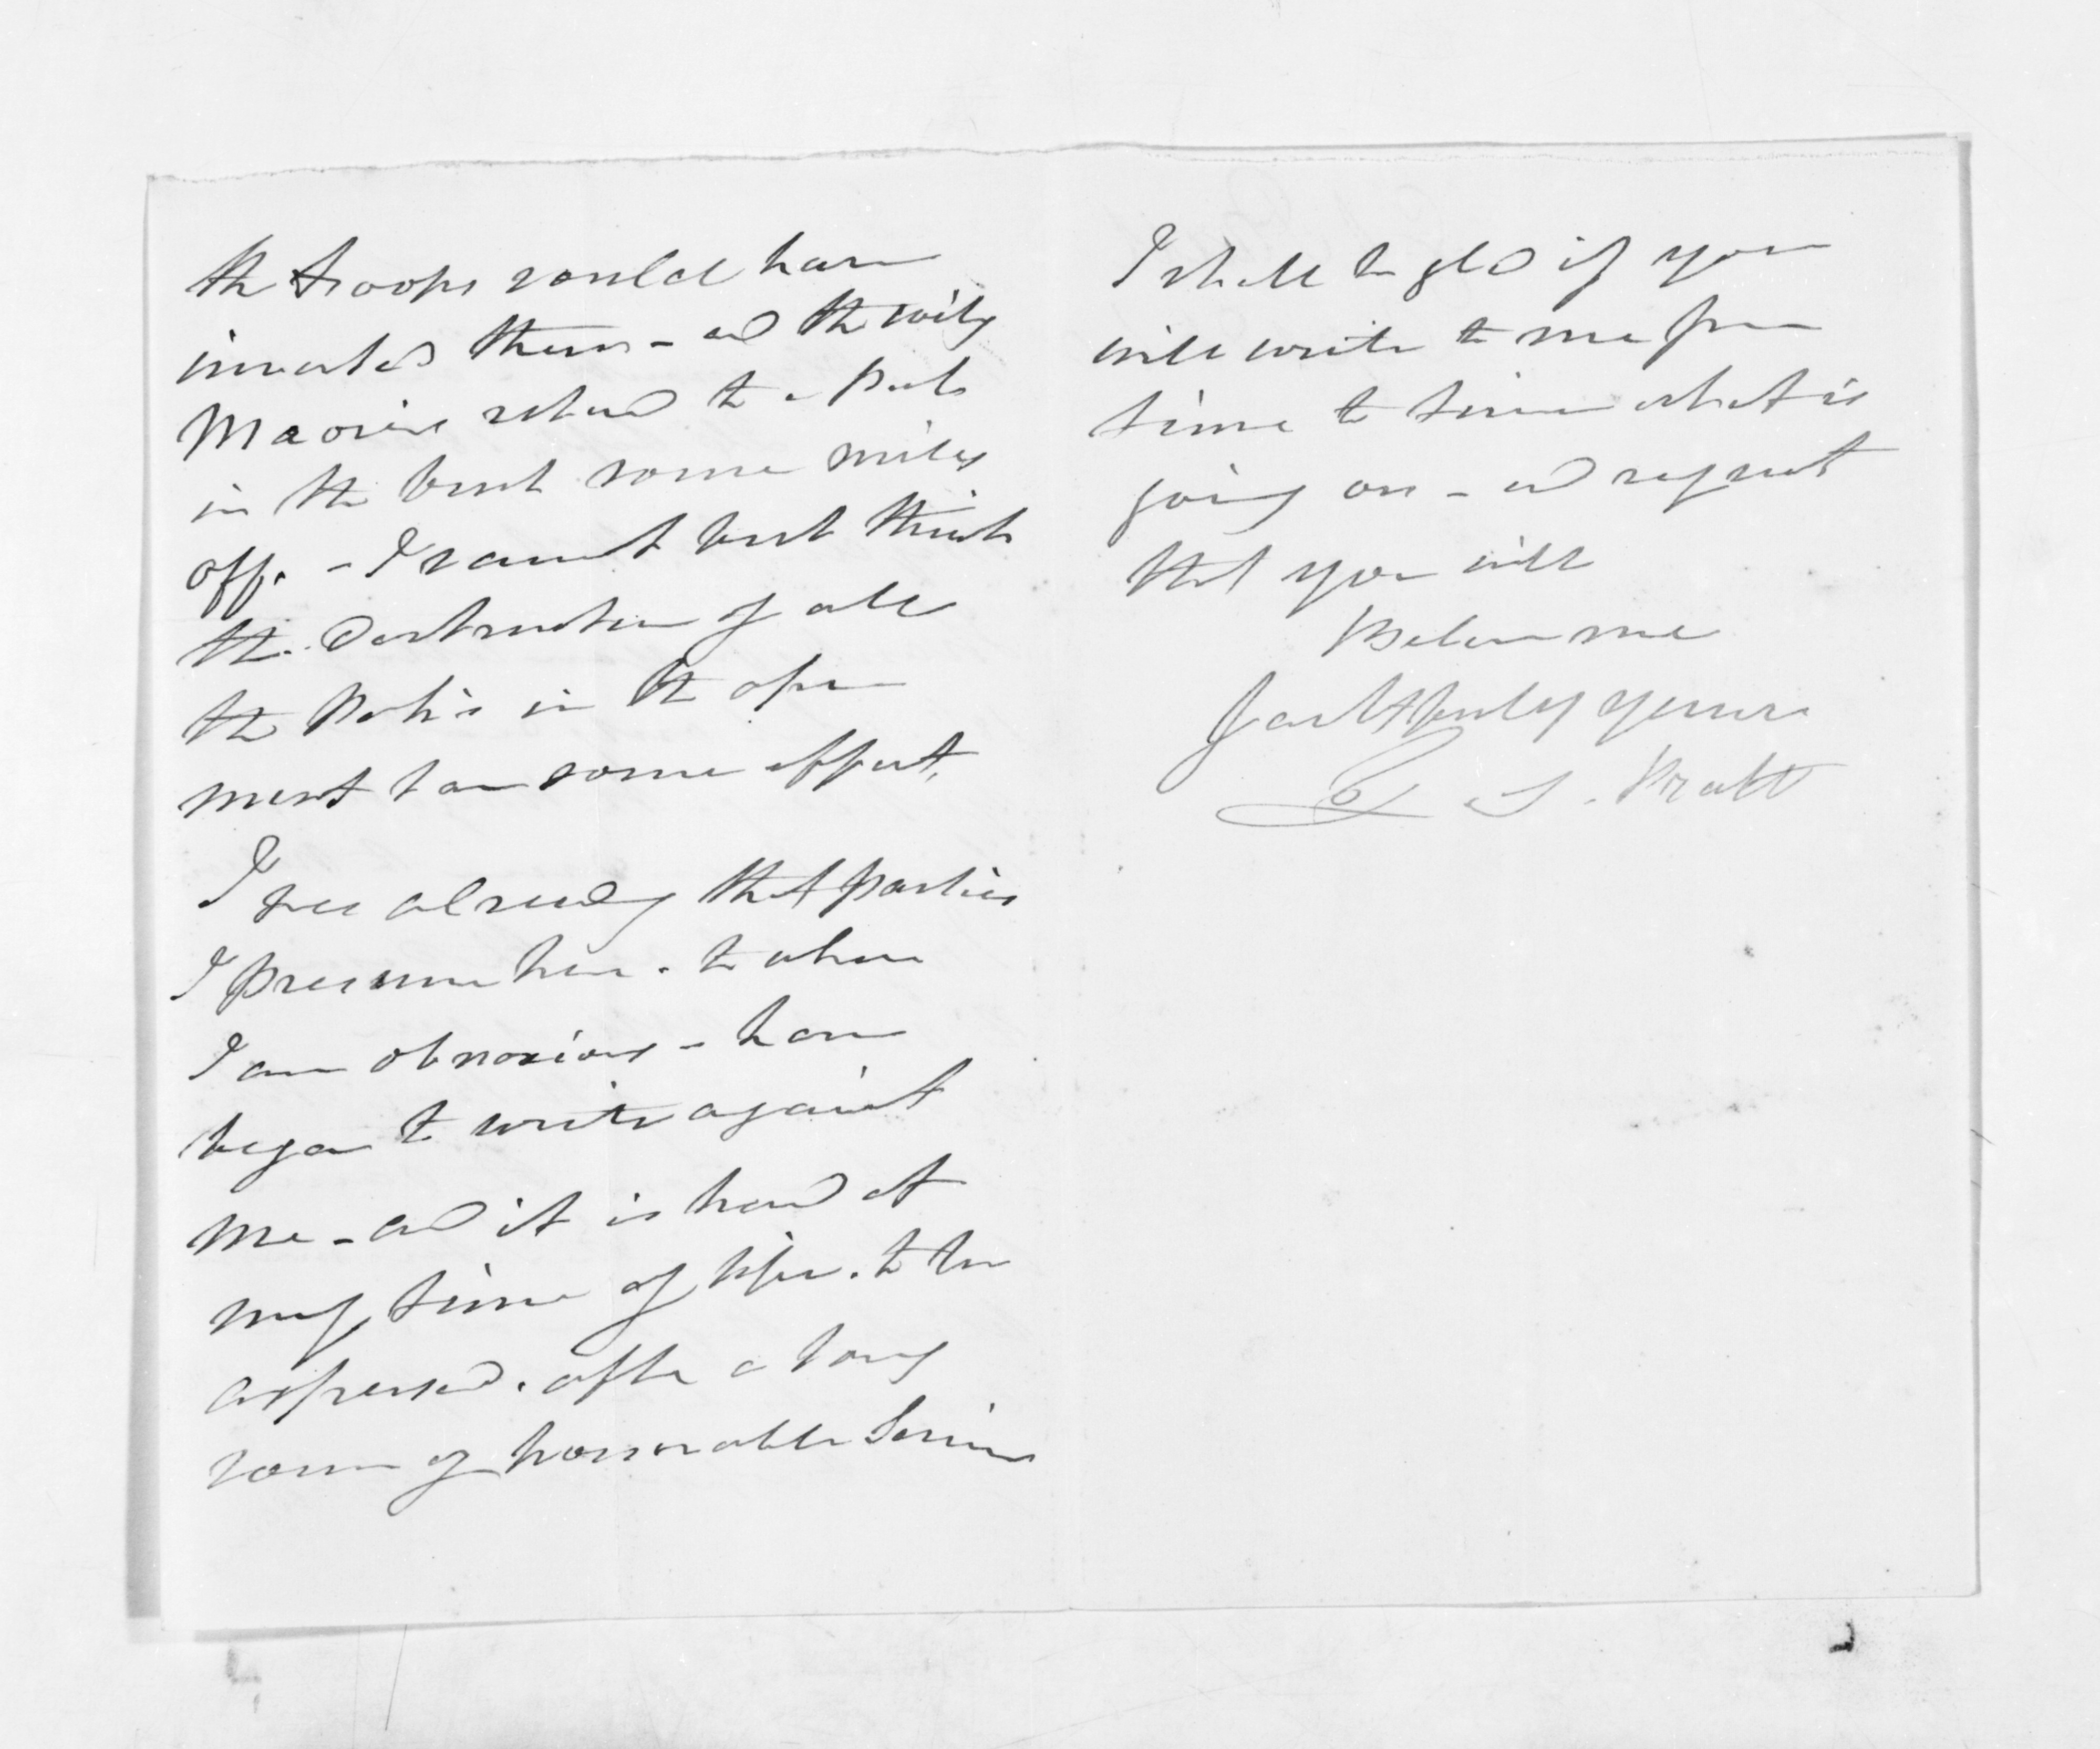 the troops could have
invested them - and the wily
Maories retired to a Pah
in the bush some miles
off. - I cannot but think
the destruction of all
the Pah's in the open
must have some effect.
I see already that parties
I presume here. to whom
I am obnoxious - have
began to write against
me - and it is hard at
my time of life. to be
aspersed. after a long
course of honorable Service
I shall be glad if you
will write to me from
time to time what is
going on - and request
that you will
Believe me
faithfully yours
T. S. Pratt